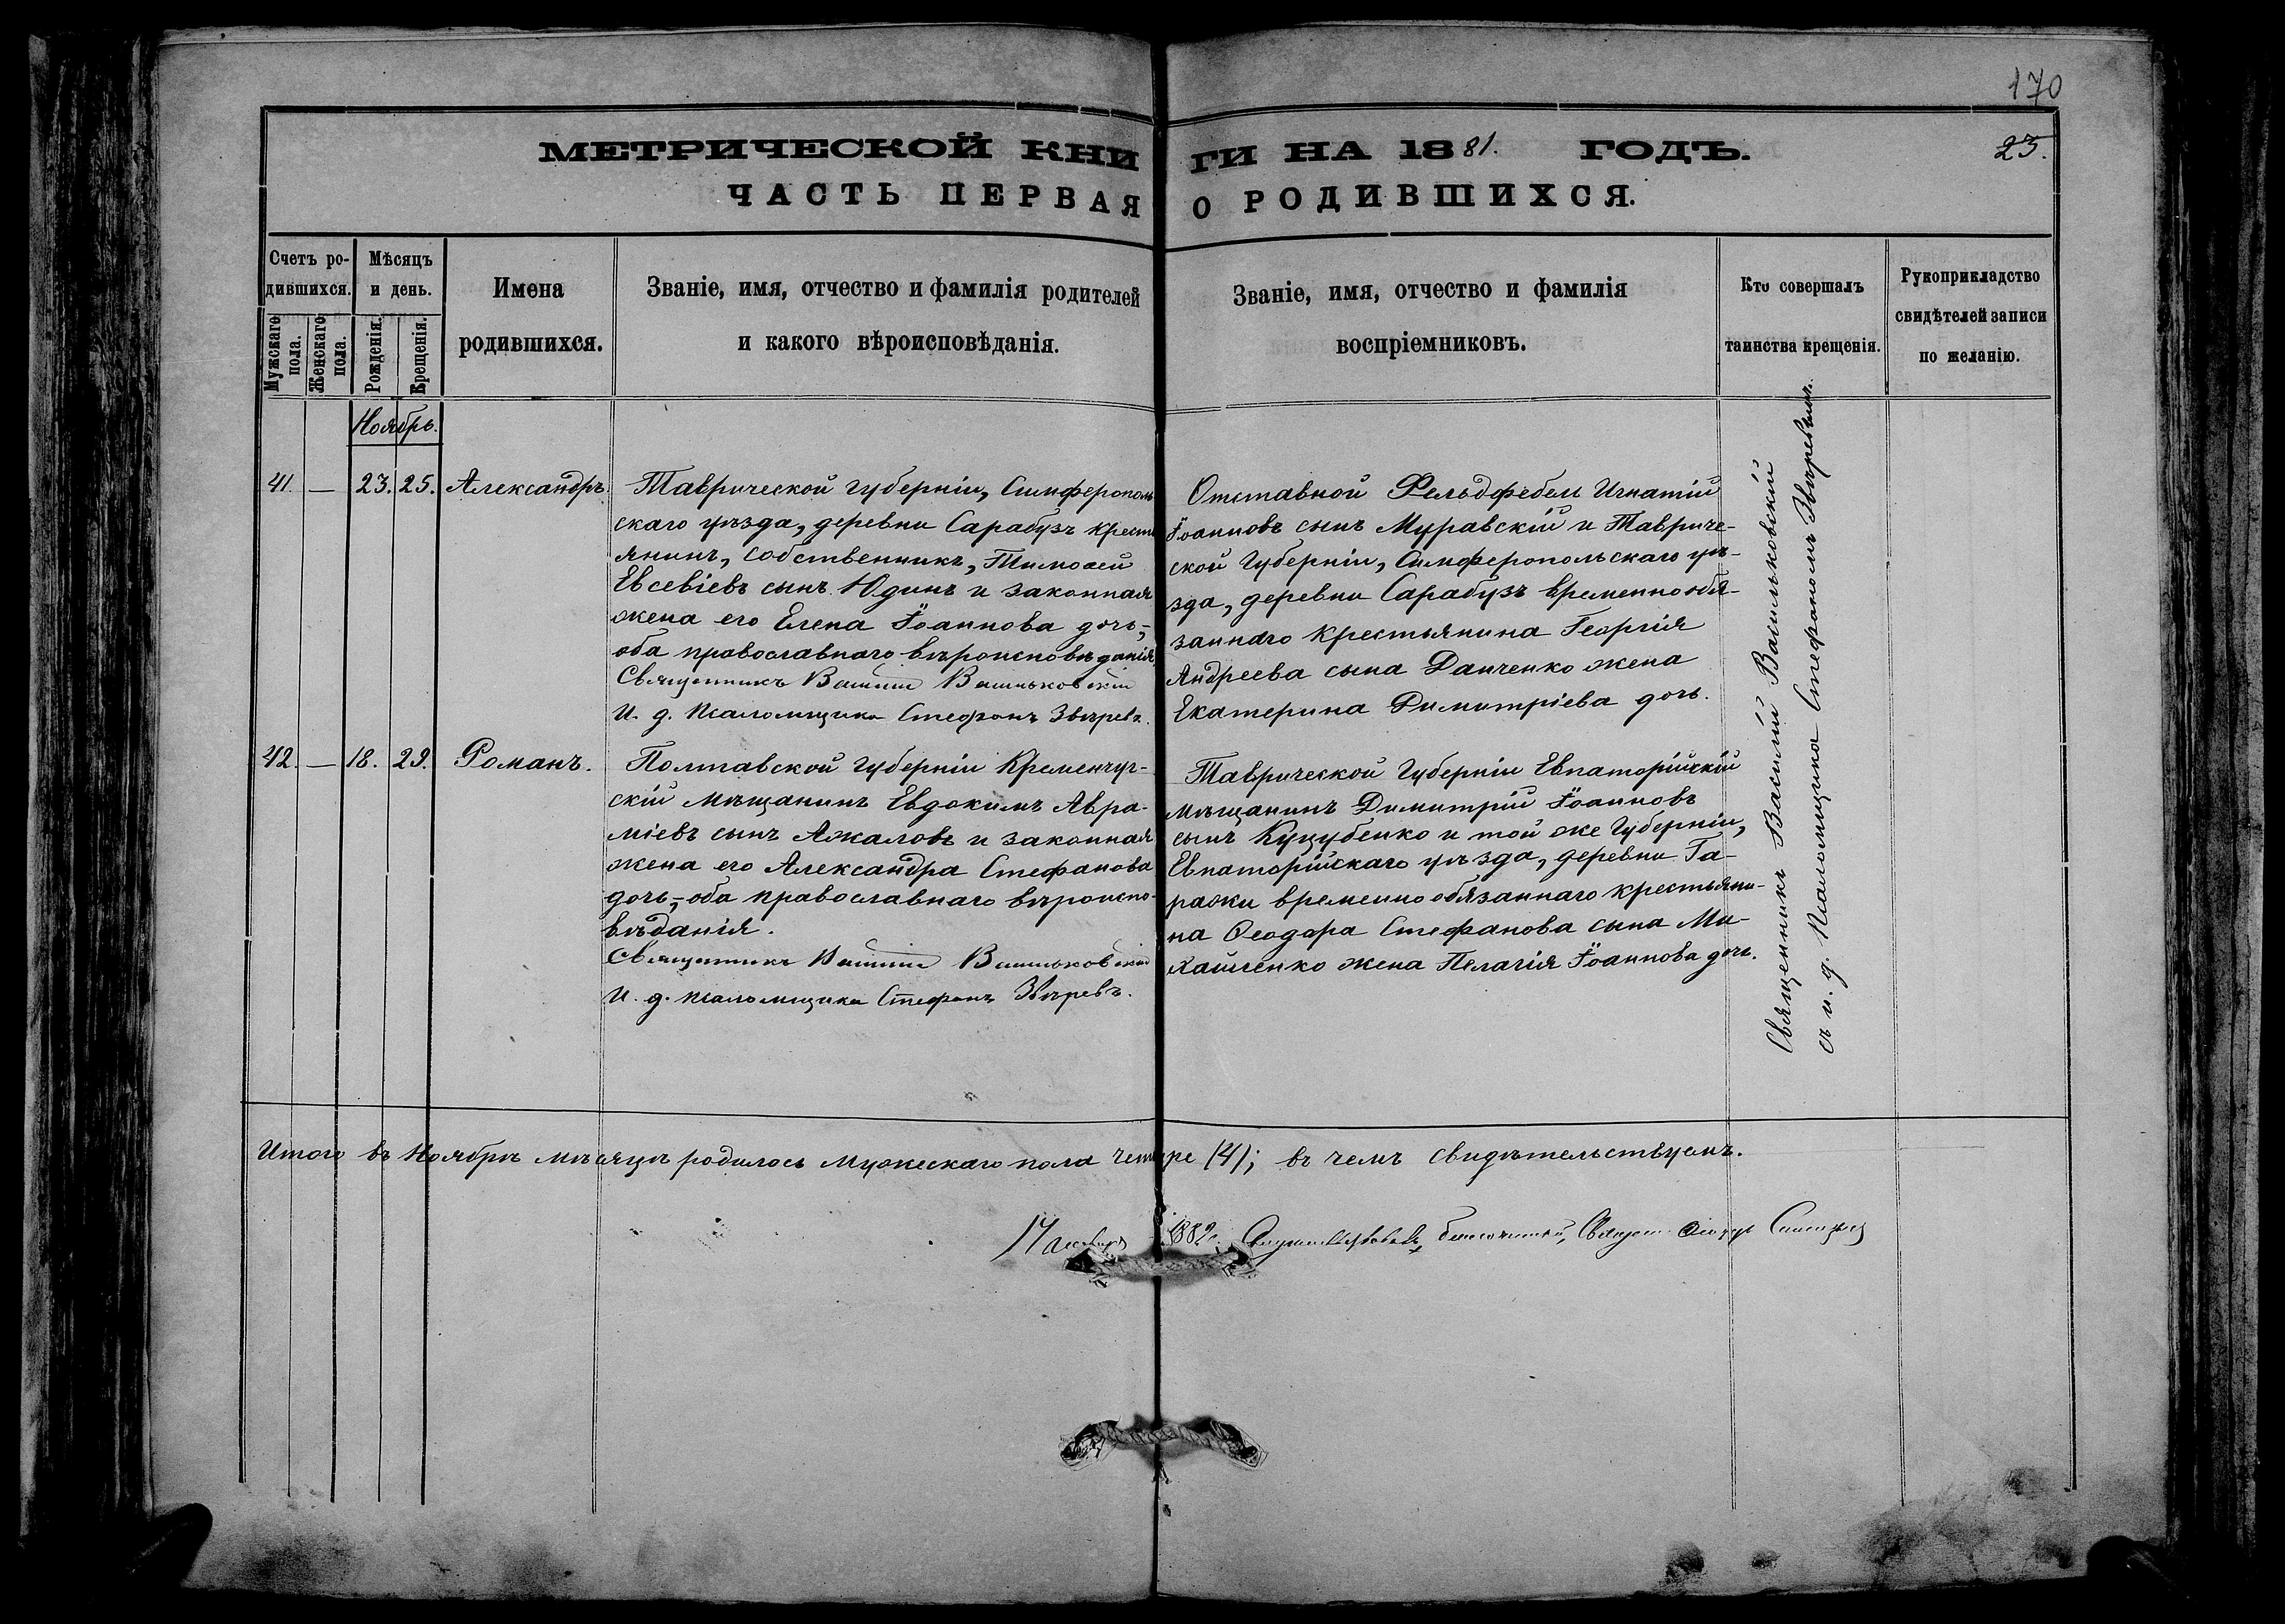 170
МЕТРИЧЕСКОЙ КНИГИ НА 1881. ГОДЪ.
23.
ЧАСТЬ ПЕРВАЯ О РОДИВШИХСЯ.
Счетъ ро-
дившихся.
Мужскаго
пола.
Женскаго
пола.
Мѣсяцъ
и день.
Рожденія.
Крещенія.
Имена
родившихся.
Званіе, имя, отчество и фамилія родителей
и какого вѣроисповѣданія.
Званіе, имя, отчество и фамилія
воспріемниковъ.
Кто совершалъ
таинства крещенія.
Рукоприкладство
свидѣтелей записи
по желанію.
Ноябрь.
41. — 23. 25. Александръ.
Таврической губерніи, Симферополь
скаго уѣзда, деревни Сарабузъ крестъ
янинъ, собственникъ, Тимоѳей
Евсевіевъ сынъ Юдинъ и законная
жена его Елена Іоаннова дочь,-
оба православнаго вѣроисповѣданія
Священникъ Василій Васильковскій
И. д. псаломщика Стефанъ Звѣревъ.
Отставной Фельдфебель Игнатій
Іоанновъ сынъ Муравскій и Тавриче-
ской Губерніи, Симферопольскаго уѣ-
зда, деревни Сарабузъ временно обя-
заннаго крестьянина Георгія
Андреева сына Данченко жена
Екатерина Димитріева дочь.
42. — 18. 29. Романъ.
Полтавской Губерніи Кременчуг-
скій мѣщанинъ Евдокимъ Авра-
міевъ сынъ Ажаловъ и законная
жена его Александра Стефанова
дочь,- оба православнаго вѣроиспо-
вѣданія.
Священникъ Василій Васильковскій
И. д. псаломщика Стефанъ Звѣревъ.
Таврической Губерніи Евпаторійскій
мѣщанинъ Димитрій Іоанновъ
сынъ Куцубенко и той же Губерніи,
Евпаторійскаго уѣзда, деревни Га-
ражи временно обязаннаго крестьяни-
на Ѳеодора Стефанова сына Ми-
хайленко жена Пелагія Іоаннова дочь.
Священникъ Василій Васильковскій
съ и. д. псаломщика Стефаномъ Звѣревымъ.
Итого въ Ноябрѣ мѣсяцѣ родилось Мужескаго пола четыре (4); въ чемъ свидѣтельствуемъ.
1882